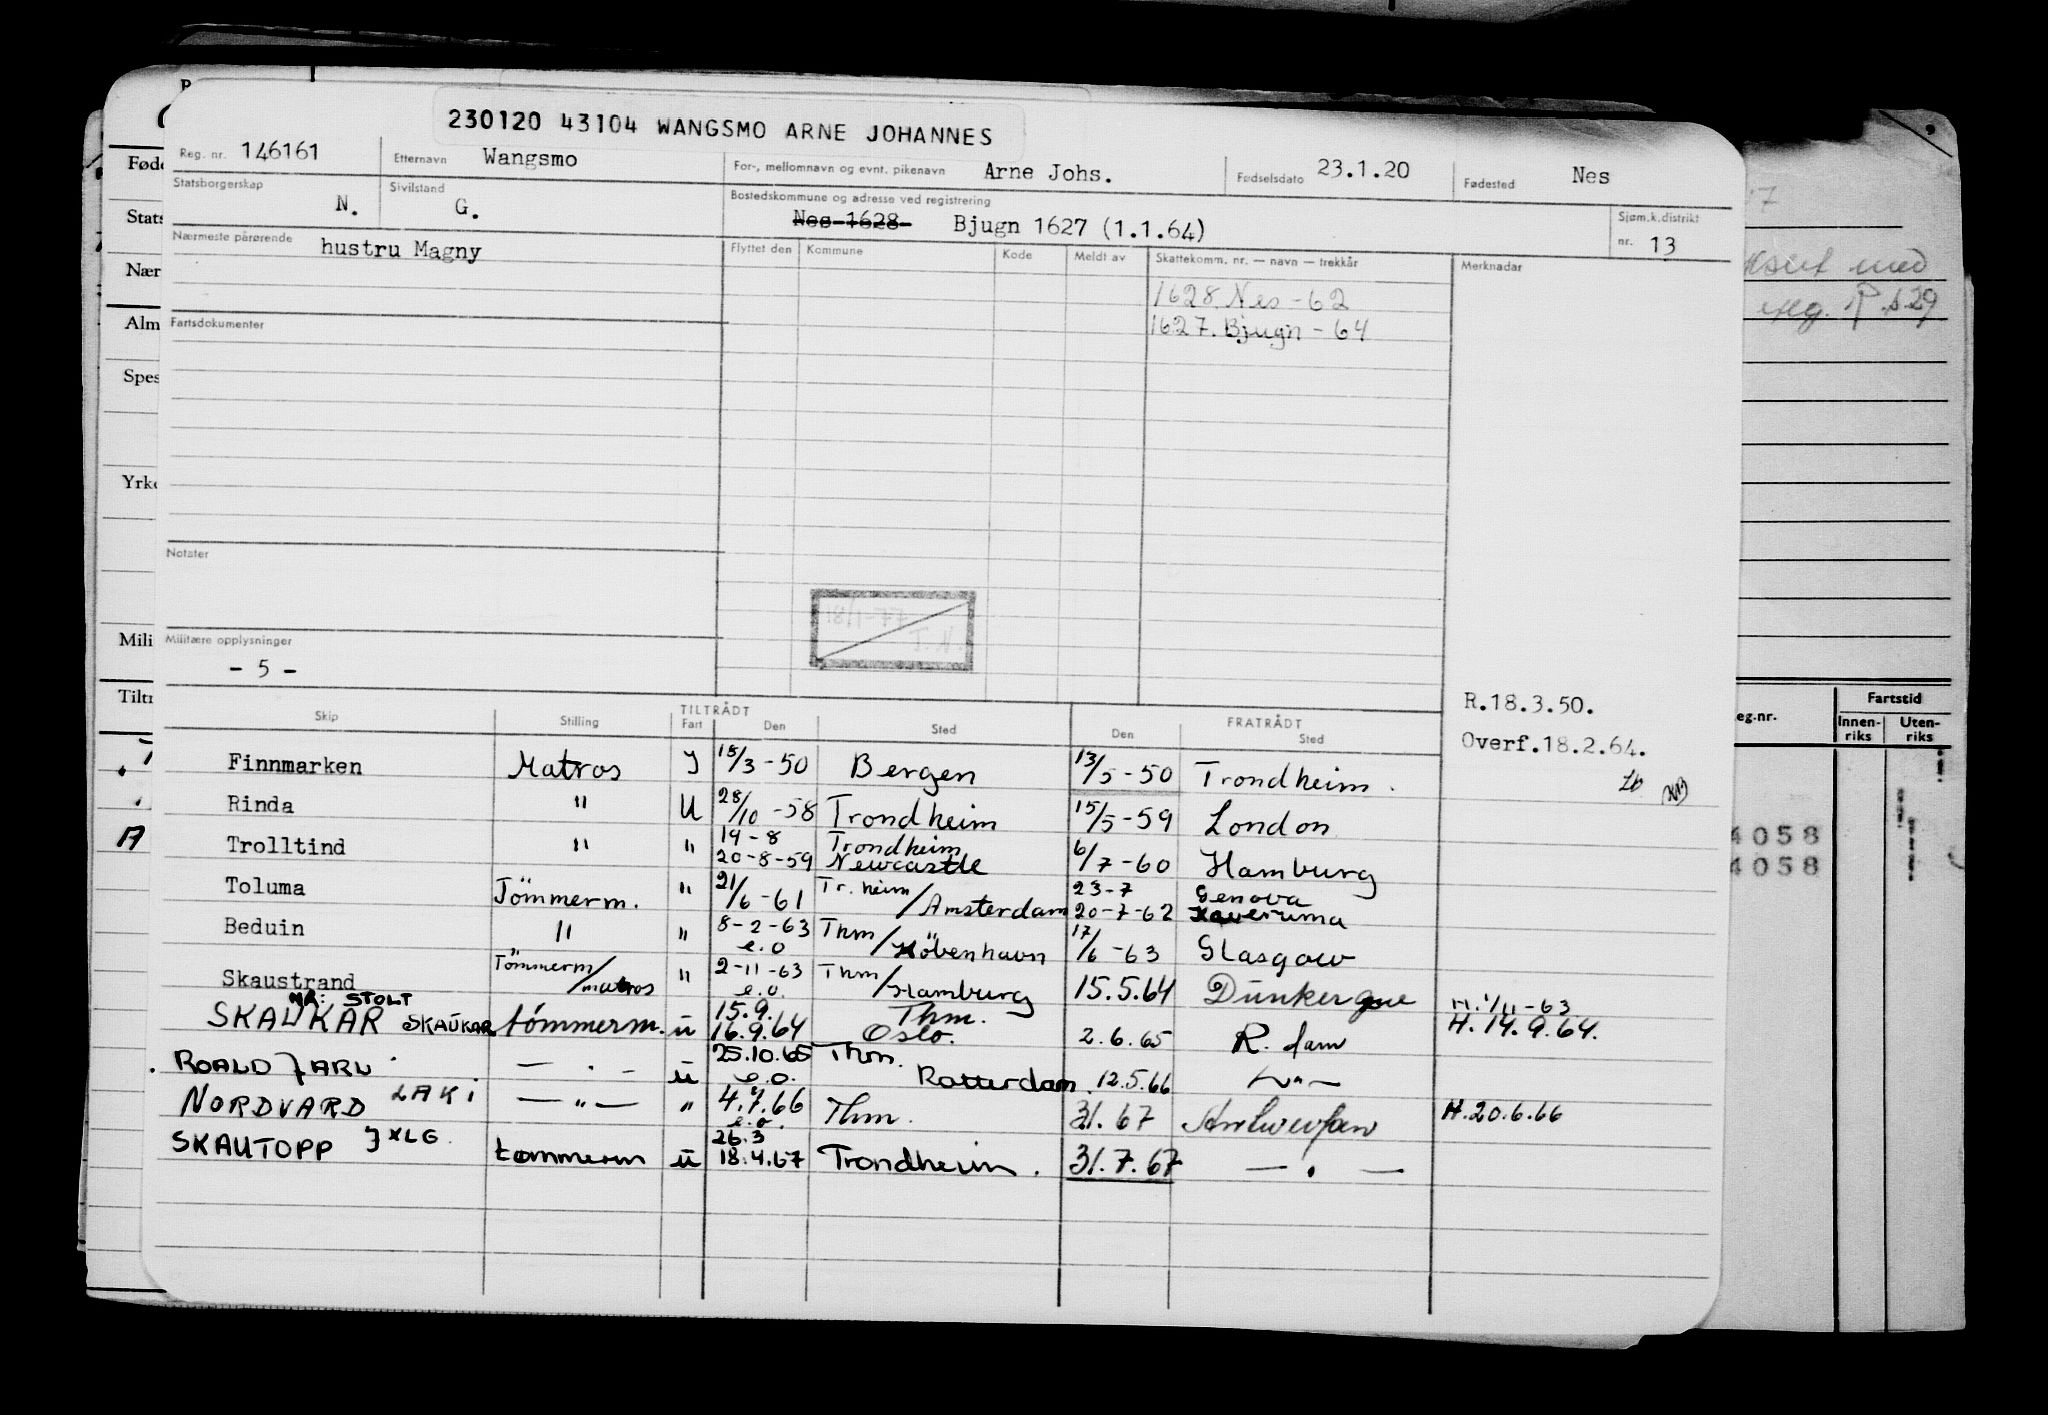 230120 43104 WANGSMO ARNE JOHANNES
Reg. nr. 146161 Etternavn Wangsmo For-, mellomnavn og evnt. pikenavn Arne Johs. Fødselsdato 23.1.20 Fødested Nes
Statsborgerskap N. Sivilstand G. Bostedskommune og adresse ved registrering Nes 1628 Bjugn 1627 (1.1.64) Sjøm.k.distrikt nr. 13
Nærmeste pårørende hustru Magny Flyttet den Kommune Kode Meldt av Skattekomm. nr. — navn — trekkår Merknader
1628 Nes - 62
1627. Bjugn - 64
Fartsdokumenter
Notater
Militære opplysninger
- 5 -
R.18.3.50.
Overf.18.2.64.
TILTRÅDT FRATRÅDT
Skip Stilling Fart Den Sted Den Sted
Finnmarken Matros J 15/3 - 50 Bergen 13/5 - 50 Trondheim.
Rinda " U 28/10 - 58 Trondheim 15/5 - 59 London
Trolltind " " 19-8 Trondheim
20-8-59 Newcastle 6/7 - 60 Hamburg
Toluma Tömmerm. " 21/6 - 61 Tr.heim / Amsterdam 23-7 Genova
20-7-62
Beduin " " 8-2-63 e.o Thm /Köbenhavn 17/6 - 63 Glasgow
Skaustrand Tömmerm / matros " 2-11-63 e.o. Thm / Hamburg 15.5.64 Dunkerque H. 1/11-63
NÅ: STOLT
SKAUKAR SKAUKAR tömmerm. u 15.9. Thm. H. 14.9.64.
16.9.64 Oslo. 2.6.65 R.dam
ROALD JARL — . — u 25.10.65 e.o. Thm. Rotterdam 12.5.66 — " —
NORDVARD LAKI — " — " 4.7.66 e.o. Thm. 31. 67 Antwerpen H.20.6.66
SKAUTOPP JXLG tømmerm u 26.3
18.4.67 Trondheim. 31.7.67 — . —
Føde
Stats
Nær
Alm
Spes
Yrke
Mili
Tiltr
A
med
eg.nr. Fartstid
Innen-riks Uten-riks
4058
4058